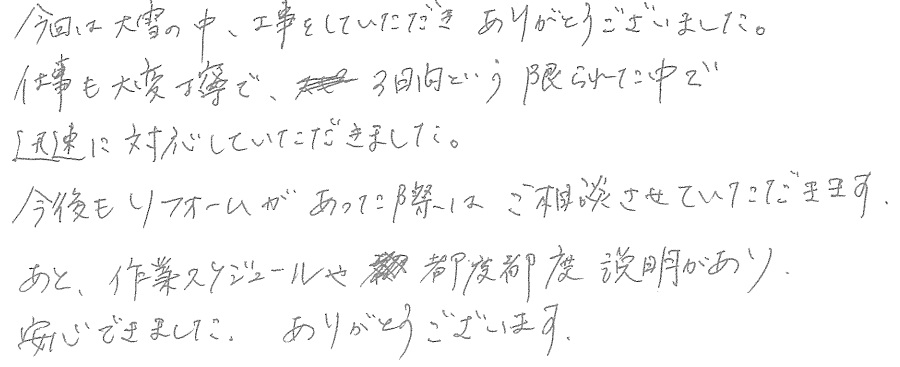 今回は大雪の中、工事をしていただき ありがとうございました。
仕事も大変丁寧で、3日間という 限られた中で
迅速に対応していただきました。
今後もリフォームが あった際には ご相談させていただきます.
あと、作業スケジュールや 都度都度 説明があり.
安心できました. ありがとうございます.